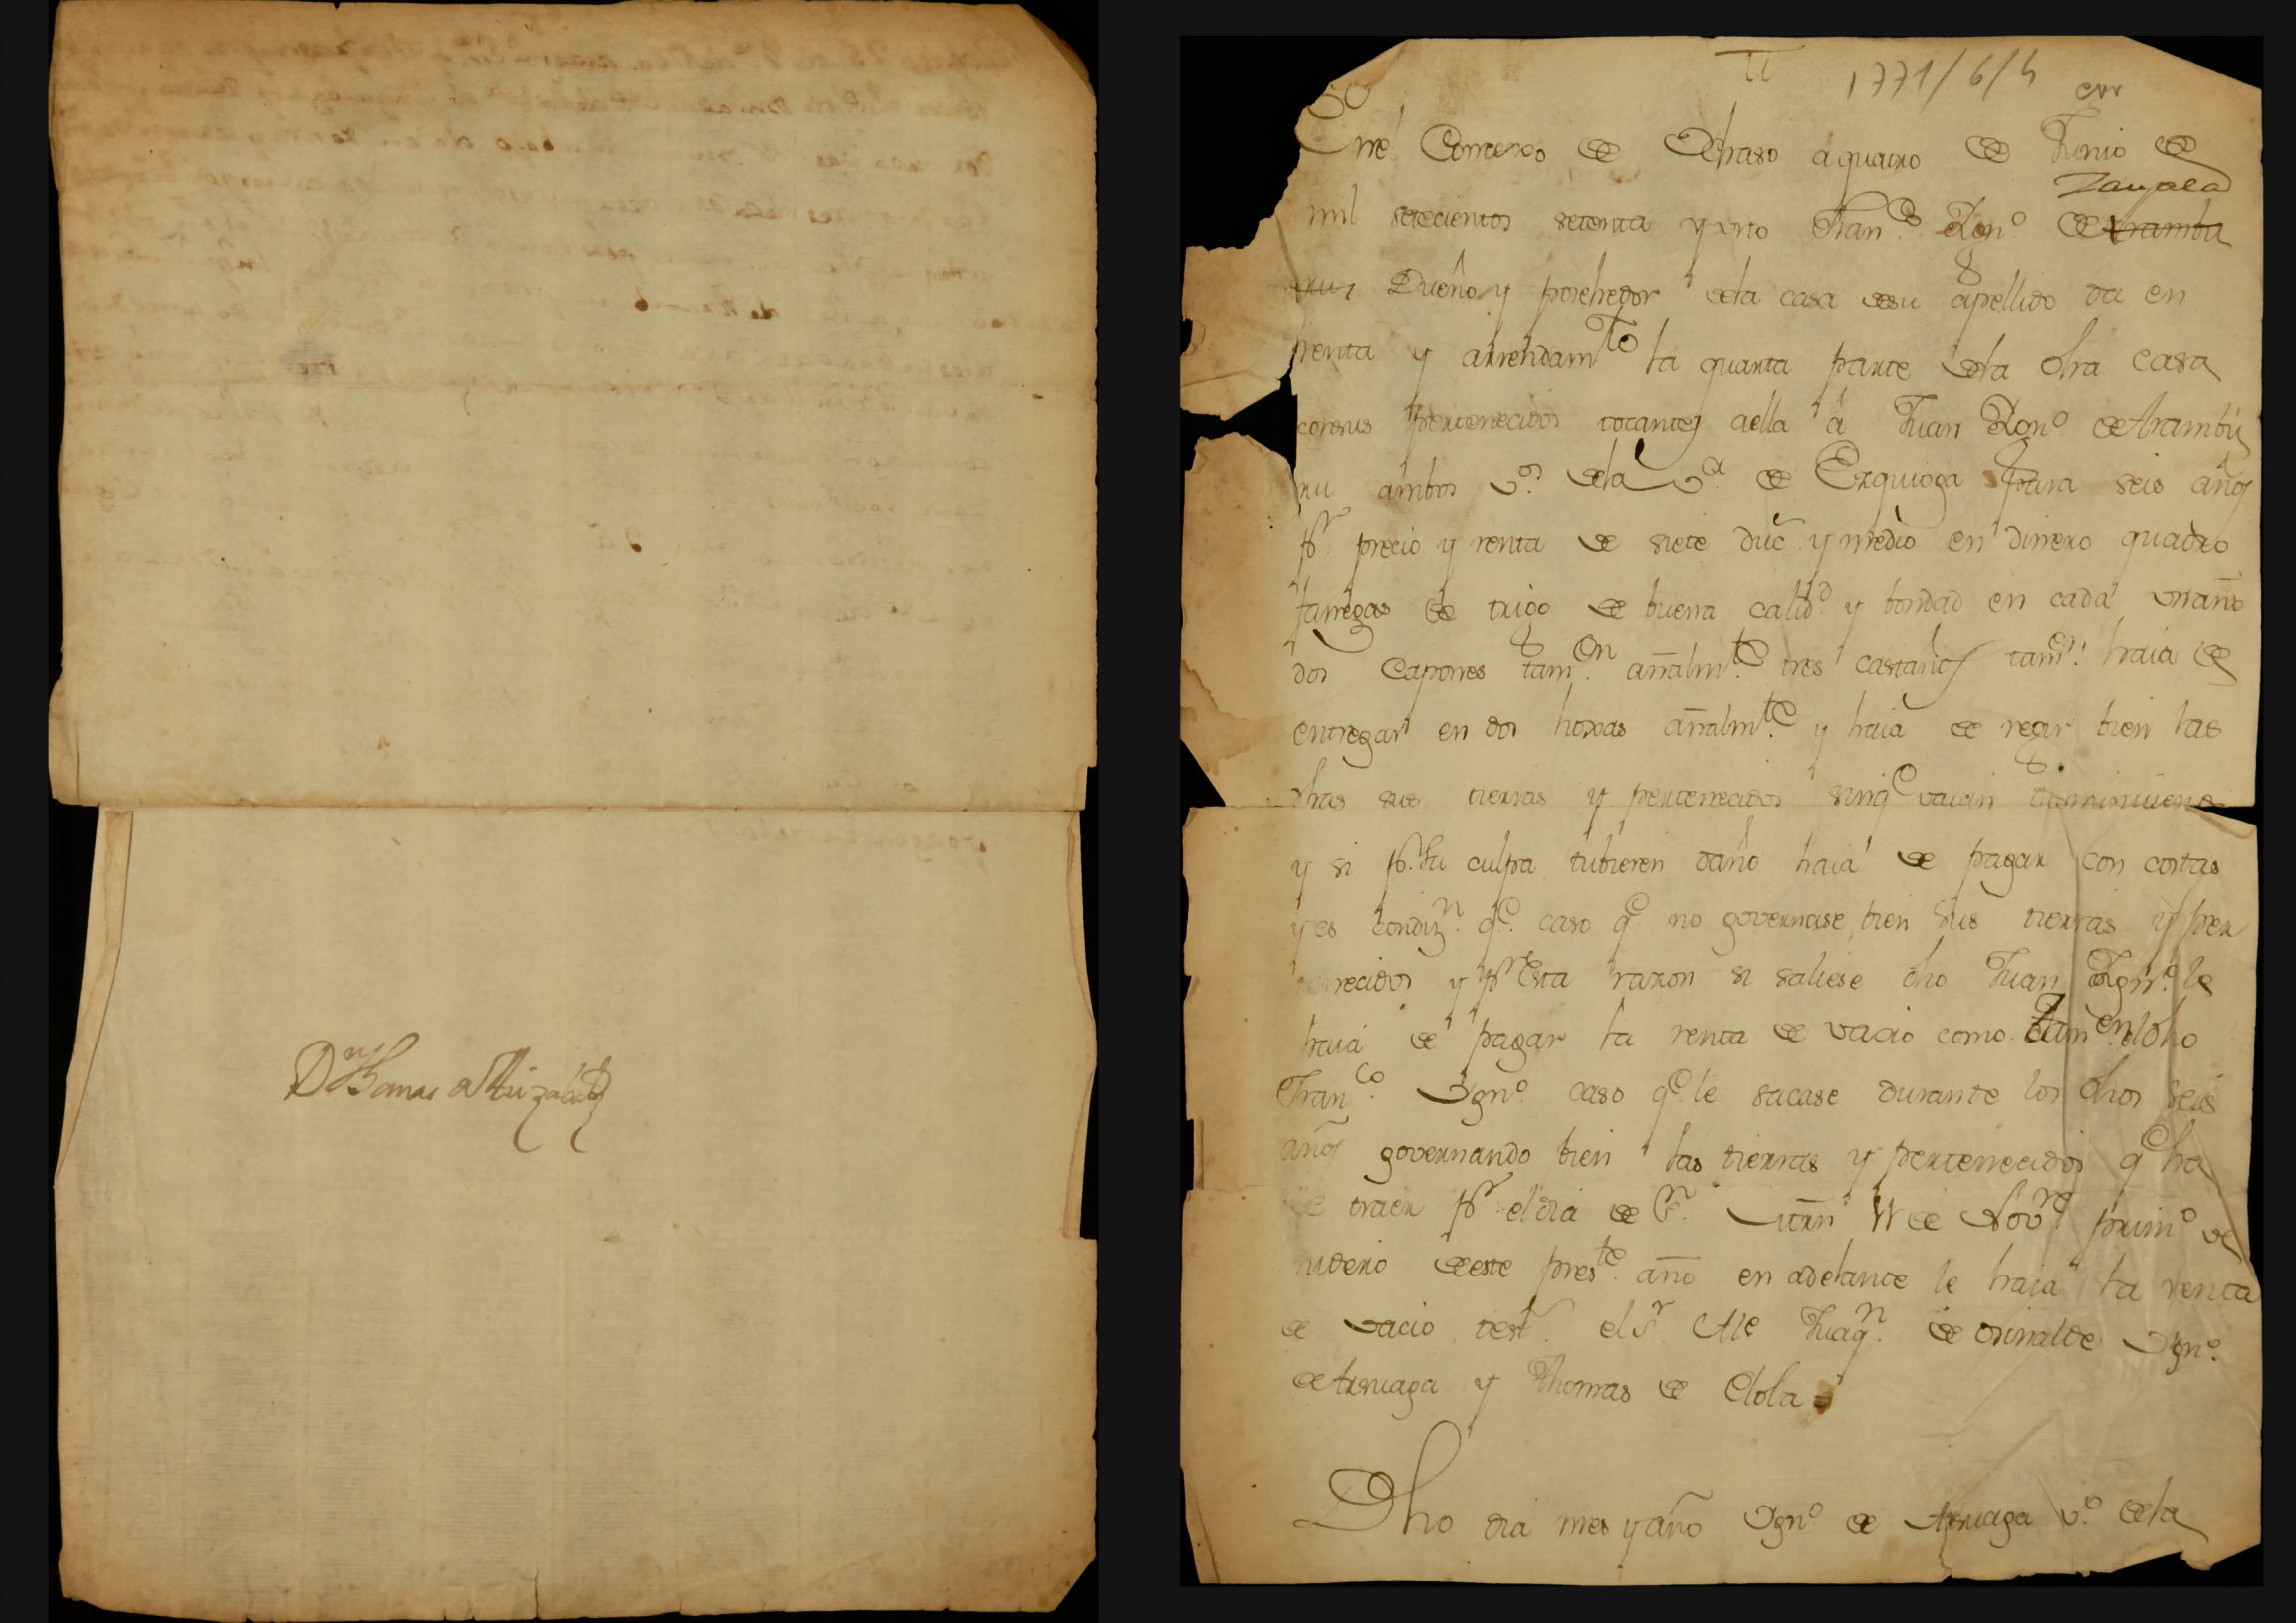 Dn Thomas de Arizabal
1771/6/4
En el Concexo de Ochaso a quatro de Junio de
mil setecientos setenta y uno Fran.co Ign.o de Arambu
Zavala
rru Dueño y posehedor dela casa desu apellido da en
renta y arrendamto la quarta parte dela dha casa
consus pertenecidos tocantes aella á Juan Ign.o de Arambú
ru ambos v.os dela v.a de Ezquioga para seis años
pr. precio y renta de siete duc. y medio en dinero quatro
fanegas de trigo de buena calid.d y bondad en cada un año
dos Capones tam.en añalm.te tres castaños tam.n haia de
entregar en dos hoxas añalm.te y haia de regir bien las
dhas sus tierras y pertenecidos sinq.e vaian
y si pr. su culpa tubieren daño haia de pagar con costas
y es condiz.n q.e caso q.e no governase bien sus tierras y per
necidos y pr Esta razon si saliese dho Juan Ign.o le
haia de pagar la renta de vacio como tam.en el dho
Fran.co Ign.o caso q.e le sacase durante los dhos seis
años governando bien las tierras y pertenecidos q.e ha
de traer pr el dia de Sn. Martn 11 de Nov.re prim.o ve
nidero deeste pres.te año en adelante le haia la renta
de vacio test.s el S.r Ale Juaq.n de Ign.o
de Arsuaga y Thomas de Elola =
Dho dia mes y año Ign.o de Arsuaga v.o dela